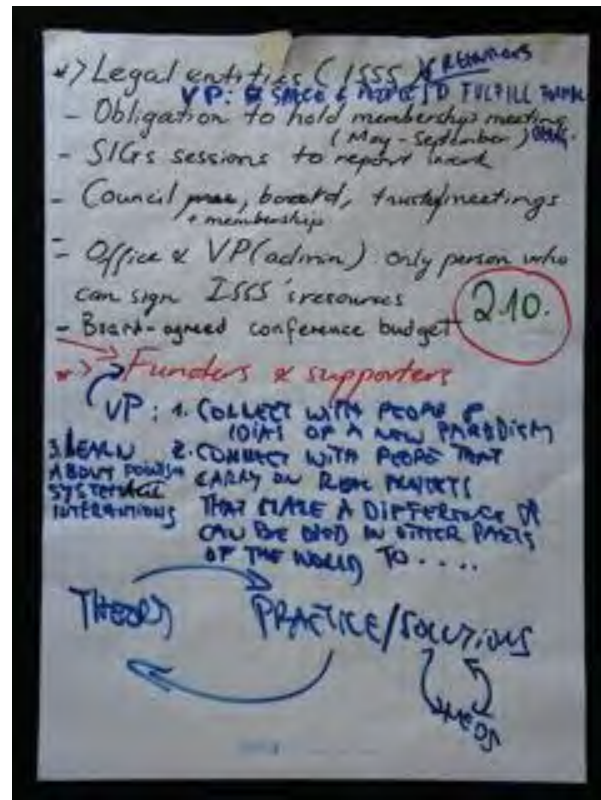 *> Legal entities (ISSS)
VP: SPACE & PEOPLE TO FULFILL
- Obligation to hold membership meeting
(May - September)
- SIGs sessions to report work
- Council, board, trustee meetings
+ membership
- Office & VP (admin) only person who
can sign ISSS's resources
2.10.
- Board-agreed conference budget
*> Funders & supporters
VP: 1. CONNECT WITH PEOPLE &
IDEAS OF A NEW PARADIGM
3. LEARN 2. CONNECT WITH PEOPLE THAT
ABOUT CARRY ON REAL PROJECTS
SYSTEM THAT MAKE A DIFFERENCE OR
INTERACTIONS CAN BE USED IN OTHER PARTS
OF THE WORLD TO ....
THEORY PRACTICE/SOLUTIONS
NEEDS